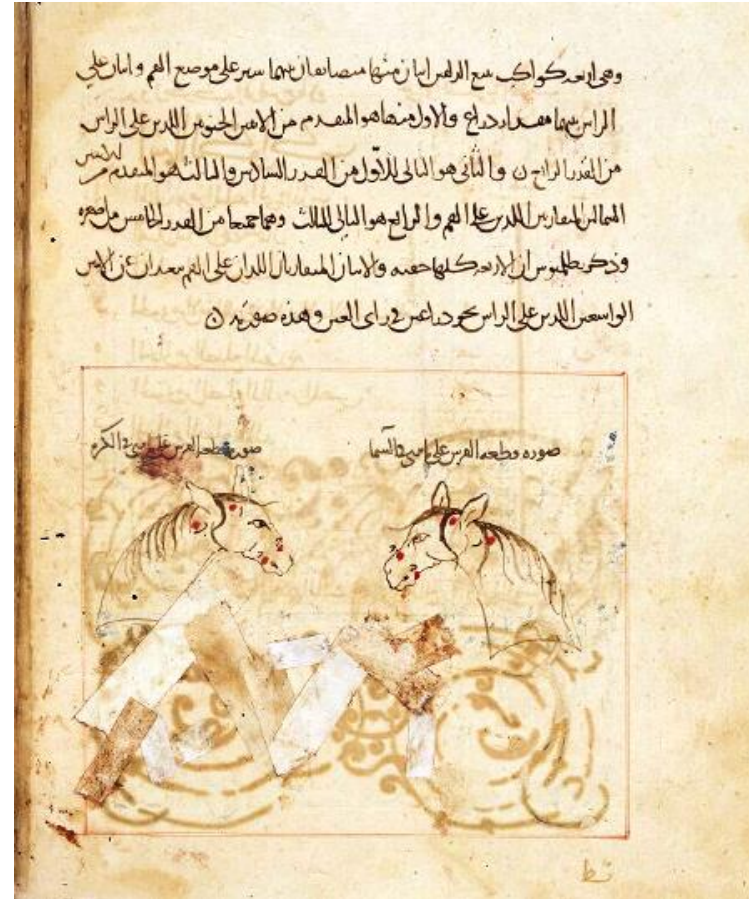 وهى اربعه كواكب تتبع الدلفين اثنان منها متضايقان بينهما شبر على موضع الفم واثنان على
الراس بينهما مقدار ذراع والاول منها هو المتقدم من الاثنين الجنوبيين اللذين على الراس
من القدر الرابع ن والثانى هو التالى للاول من القدر السادس والثالث هو المتقدم من الاثنين
الشماليين المتقاربين اللذين على الفم والرابع هو التالى للثالث وهما جميعا من القدر الخامس من اصغره
وذكر بطلميوس ان الاربعه كلها خفيه والاثنان المتقاربان اللذان على الفم يبعدان عن الاثنين
الواسعين اللذين على الراس نحو ذراعين فى راى العين وهذه صورته ن
صوره قطعه الفرس على ما يرى فى السما
صوره قطعه الفرس على ما يرى فى الكره